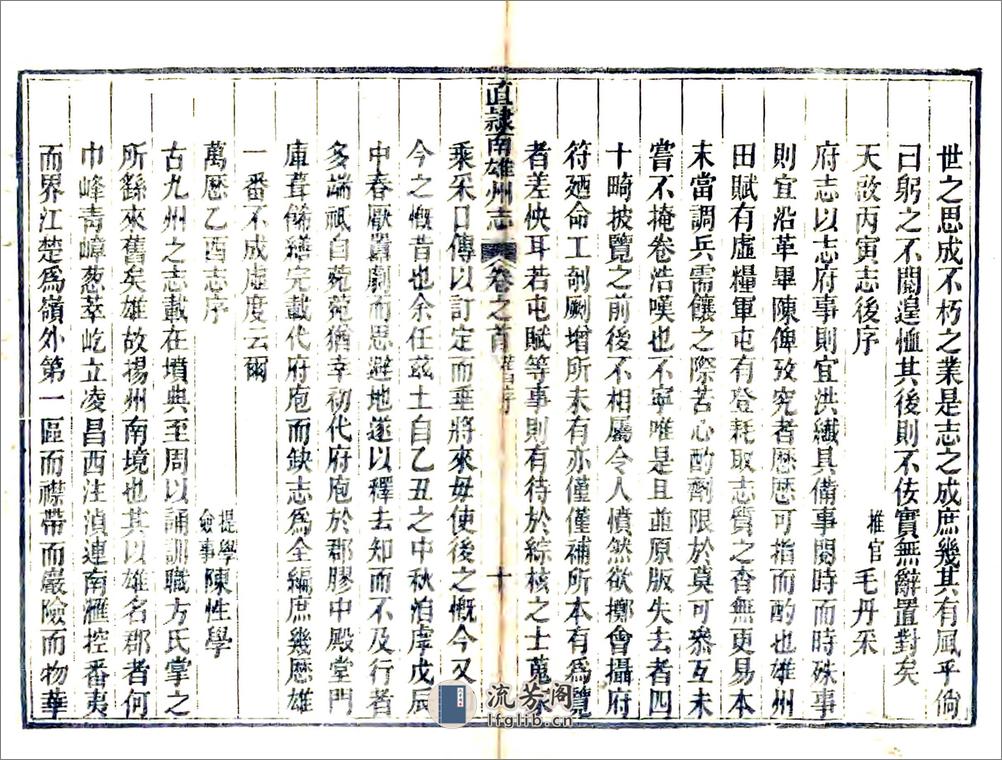 世之思成不朽之業是志之成庶幾其有風乎倘
曰躬之不閱遑恤其後則不佞實無辭置對矣
天啟丙寅志後序
推官毛丹采
府志以志府事則宜洪纖具備事閱時而時殊事
則宜沿革畢陳俾攷究者歷歷可指而酌也雄州
田賦有虛糧軍屯有登耗取志質之杳無更易本
末當調兵需饟之際苦心酌劑限於莫可叅互未
嘗不掩卷浩嘆也不寧唯是且並原版失去者四
十畸披覽之前後不相屬令人憤然欲擲會攝府
符廼命工剞劂增所未有亦僅僅補所本有爲覽
者差怏耳若屯賦等事則有待於綜核之士蒐
直隷南雄州志
卷之首
舊序
十
乘采口傳以訂定而垂將來毋使後之慨今又
今之慨昔也余任兹土自乙丑之中秋洎虖戊辰
中春厭囂劇而思避地遂以釋去知而不及行者
多端祇自菀菀猶幸初代府庖於郡膠中殿堂門
庫葺俻繕完載代府庖而缺志爲全編庶幾歷雄
一番不成虛度云爾
萬歷乙酉志序
提學僉事陳性學
古九州之志載在墳典至周以誦訓職方氏掌之
所繇來舊矣雄故揚州南境也其以雄名郡者何
巾峰靑嶂葱萃屹立凌昌西注湞連南滙控番夷
而界江楚爲嶺外第一區而襟帶而巖險而物華
流芳阁
lfglib.cn